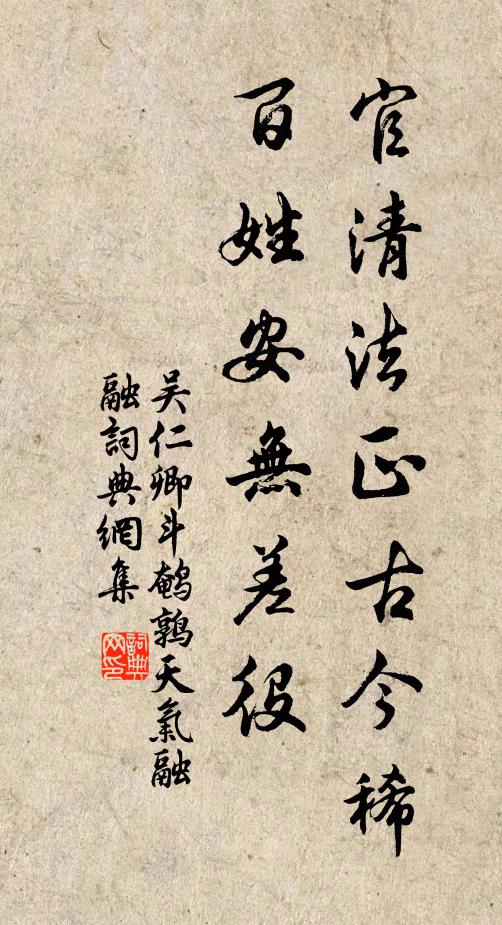 官清法正古今稀
百姓安無差役
吴仁卿斗鹌鹑天氣融
融詞典網集
詞典
网印